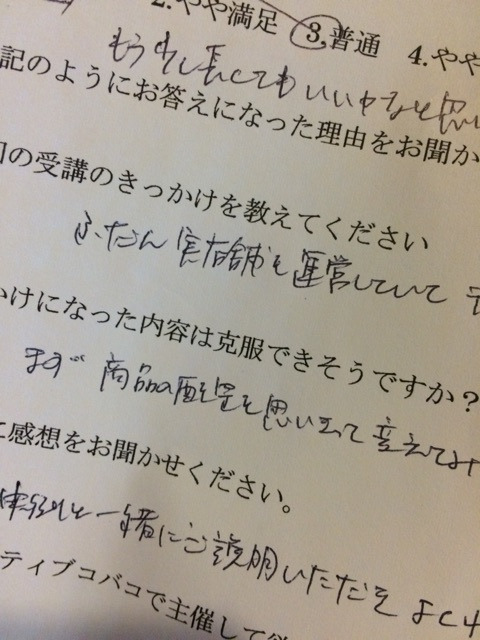 2.やや満足 3.普通 4.やや
もう少し長くてもいいかなと思い
記のようにお答えになった理由をお聞か
回の受講のきっかけを教えてください
ふだん実店舗を運営していて
いけになった内容は克服できそうですか?
まず商品の配置を思い立って変えてみ
ご感想をお聞かせください。
と一緒にご説明いただき よく
ティブコバコで主催して